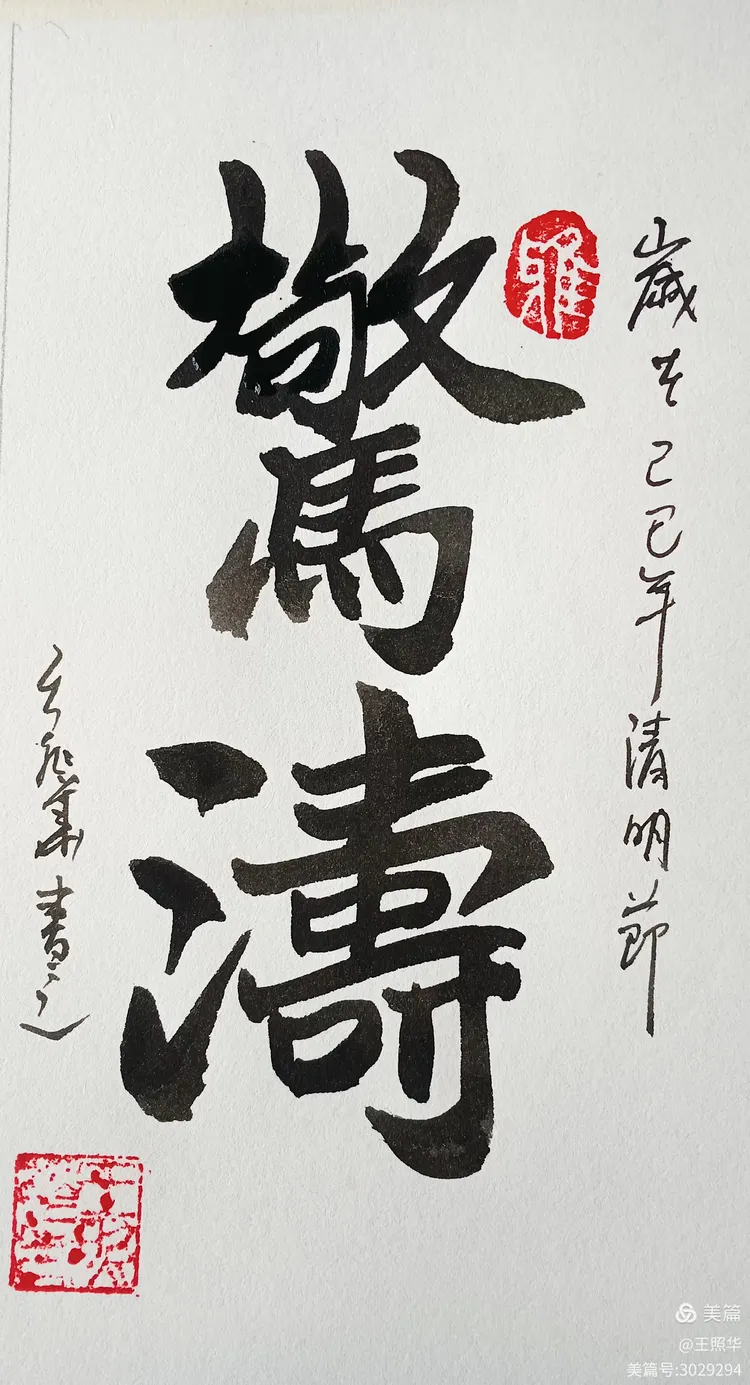 驚濤
雅
歲在己巳年清明節
書之
美篇
@王照华
美篇号:3029294